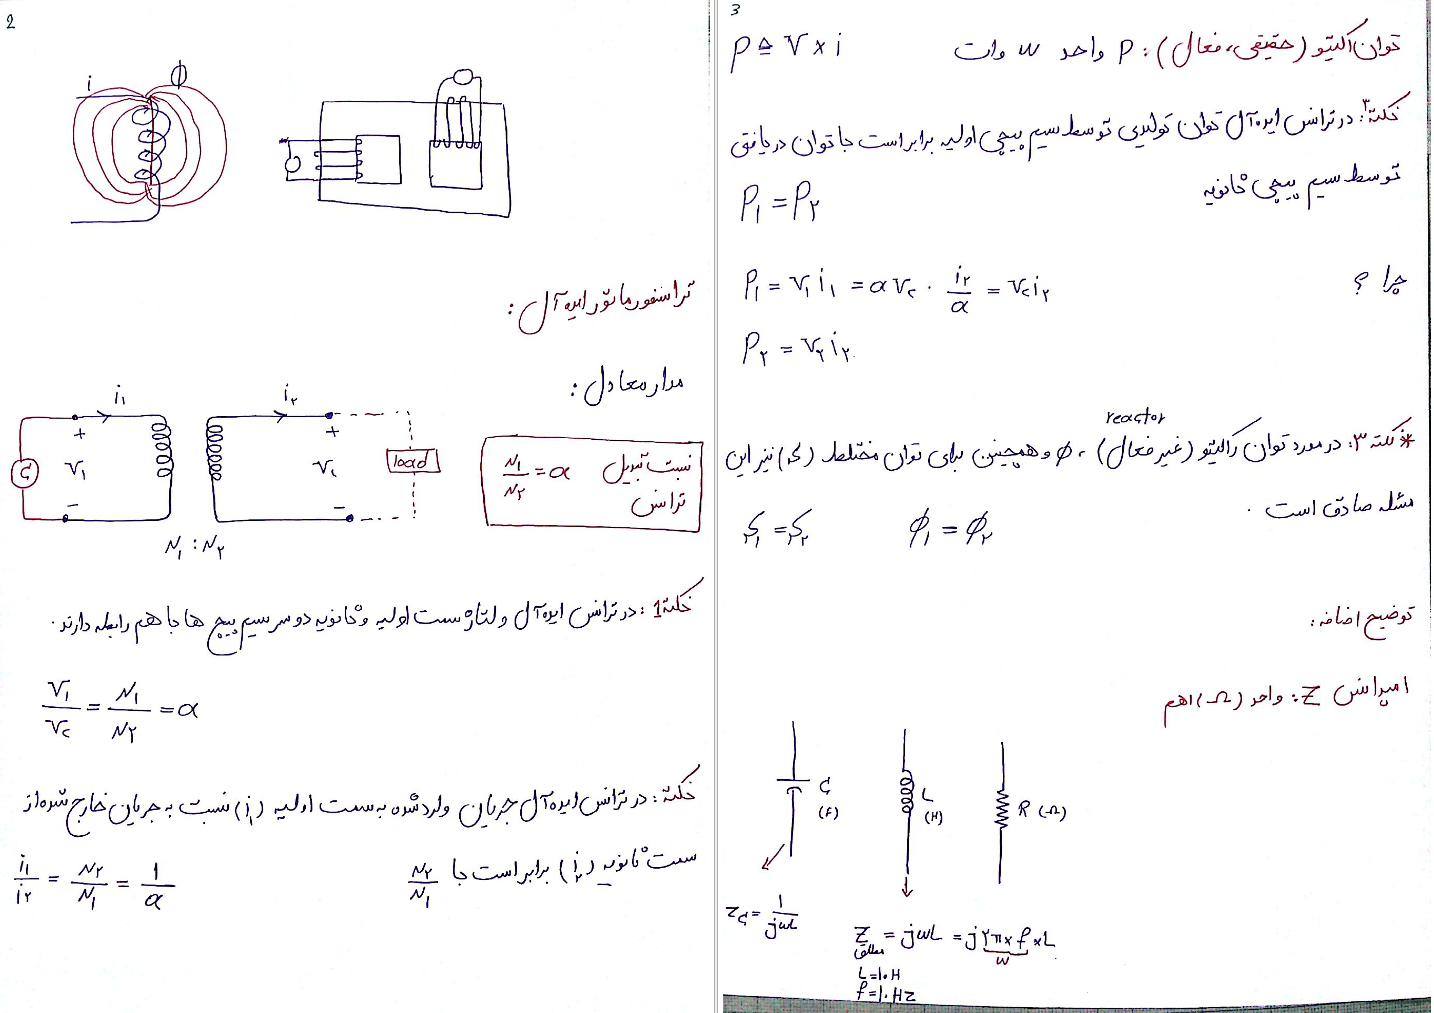 2
i
ϕ
ترانسفورماتور ایده آل :
مدار معادل :
i۱
i۲
+
V۱
-
+
V۲
-
load
G
N۱ : N۲
نسبت تبدیل N۱/N۲ = α
ترانس
نکته 1 : در ترانس ایده آل ولتاژ سمت اولیه و ثانویه دو سر سیم پیچ ها با هم رابطه دارند.
V۱/V۲ = N۱/N۲ = α
نکته : در ترانس ایده آل جریان وارد شده به سمت اولیه (i۱) نسبت به جریان خارج شده از
سمت ثانویه (i۲) برابر است با N۲/N۱
i۱/i۲ = N۲/N۱ = ۱/α
3
توان اکتیو (حقیقی، فعال) : P واحد W وات
P ≙ V × i
نکته ۳ : در ترانس ایده آل توان تولیدی توسط سیم پیچی اولیه برابر است با توان دریافتی
توسط سیم پیچی ثانویه
P۱ = P۲
چرا ؟
P۱ = V۱ i۱ = α V۲ · i۲/α = V۲ i۲
P۲ = V۲ i۲
reactor
* نکته ۳ : در مورد توان راکتیو (غیر فعال) ، φ و همچنین برای توان مختلط (S) نیز این
مسئله صادق است .
S۱ = S۲
φ۱ = φ۲
توضیح اضافه :
امپدانس Z : واحد (Ω) اهم
C
(F)
L
(H)
R (Ω)
Zc = ۱/jωL
Z = jωL = j۲π × f × L
مطلق
ω
L = ۱۰ H
f = ۱۰ Hz